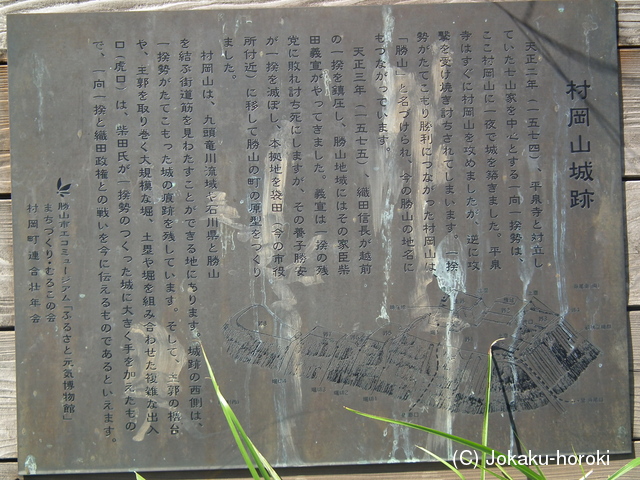 村岡山城跡
天正二年(一五七四)、平泉寺と対立し
ていた七山家を中心とする一向一揆勢は、
ここ村岡山に一夜で城を築きました。平泉
寺はすぐに村岡山を攻めましたが、逆に攻
撃を受け焼き討ちされてしまいます。一揆
勢がたてこもり勝利につながった村岡山は
「勝山」と名づけられ、今の勝山の地名に
もつながっています。
天正三年(一五七五)、織田信長が越前
の一揆を鎮圧し、勝山地域にはその家臣柴
田義宣がやってきました。義宣は一揆の残
党に敗れ討ち死にしますが、その養子勝安
が一揆を滅ぼし、本拠地を袋田(今の市役
所付近)に移して勝山の町の原型をつくり
ました。
村岡山は、九頭竜川流域や石川県と勝山
を結ぶ街道筋を見わたすことができる地にあります。城跡の西側は、
一揆勢がたてこもった城の痕跡を残しています。そして、主郭の櫓台
や、主郭を取り巻く大規模な堀、土塁や堀を組み合わせた複雑な出入
口(虎口)は、柴田氏が一揆勢のつくった城に大きく手をかえたもの
で、一向一揆と織田政権との戦いを今に伝えるものであるといえます。
勝山市エコミュージアム「ふるさと元気博物館」
まちづくり・むろこの会
村岡町連合壮年会
(C) Jokaku-horoki